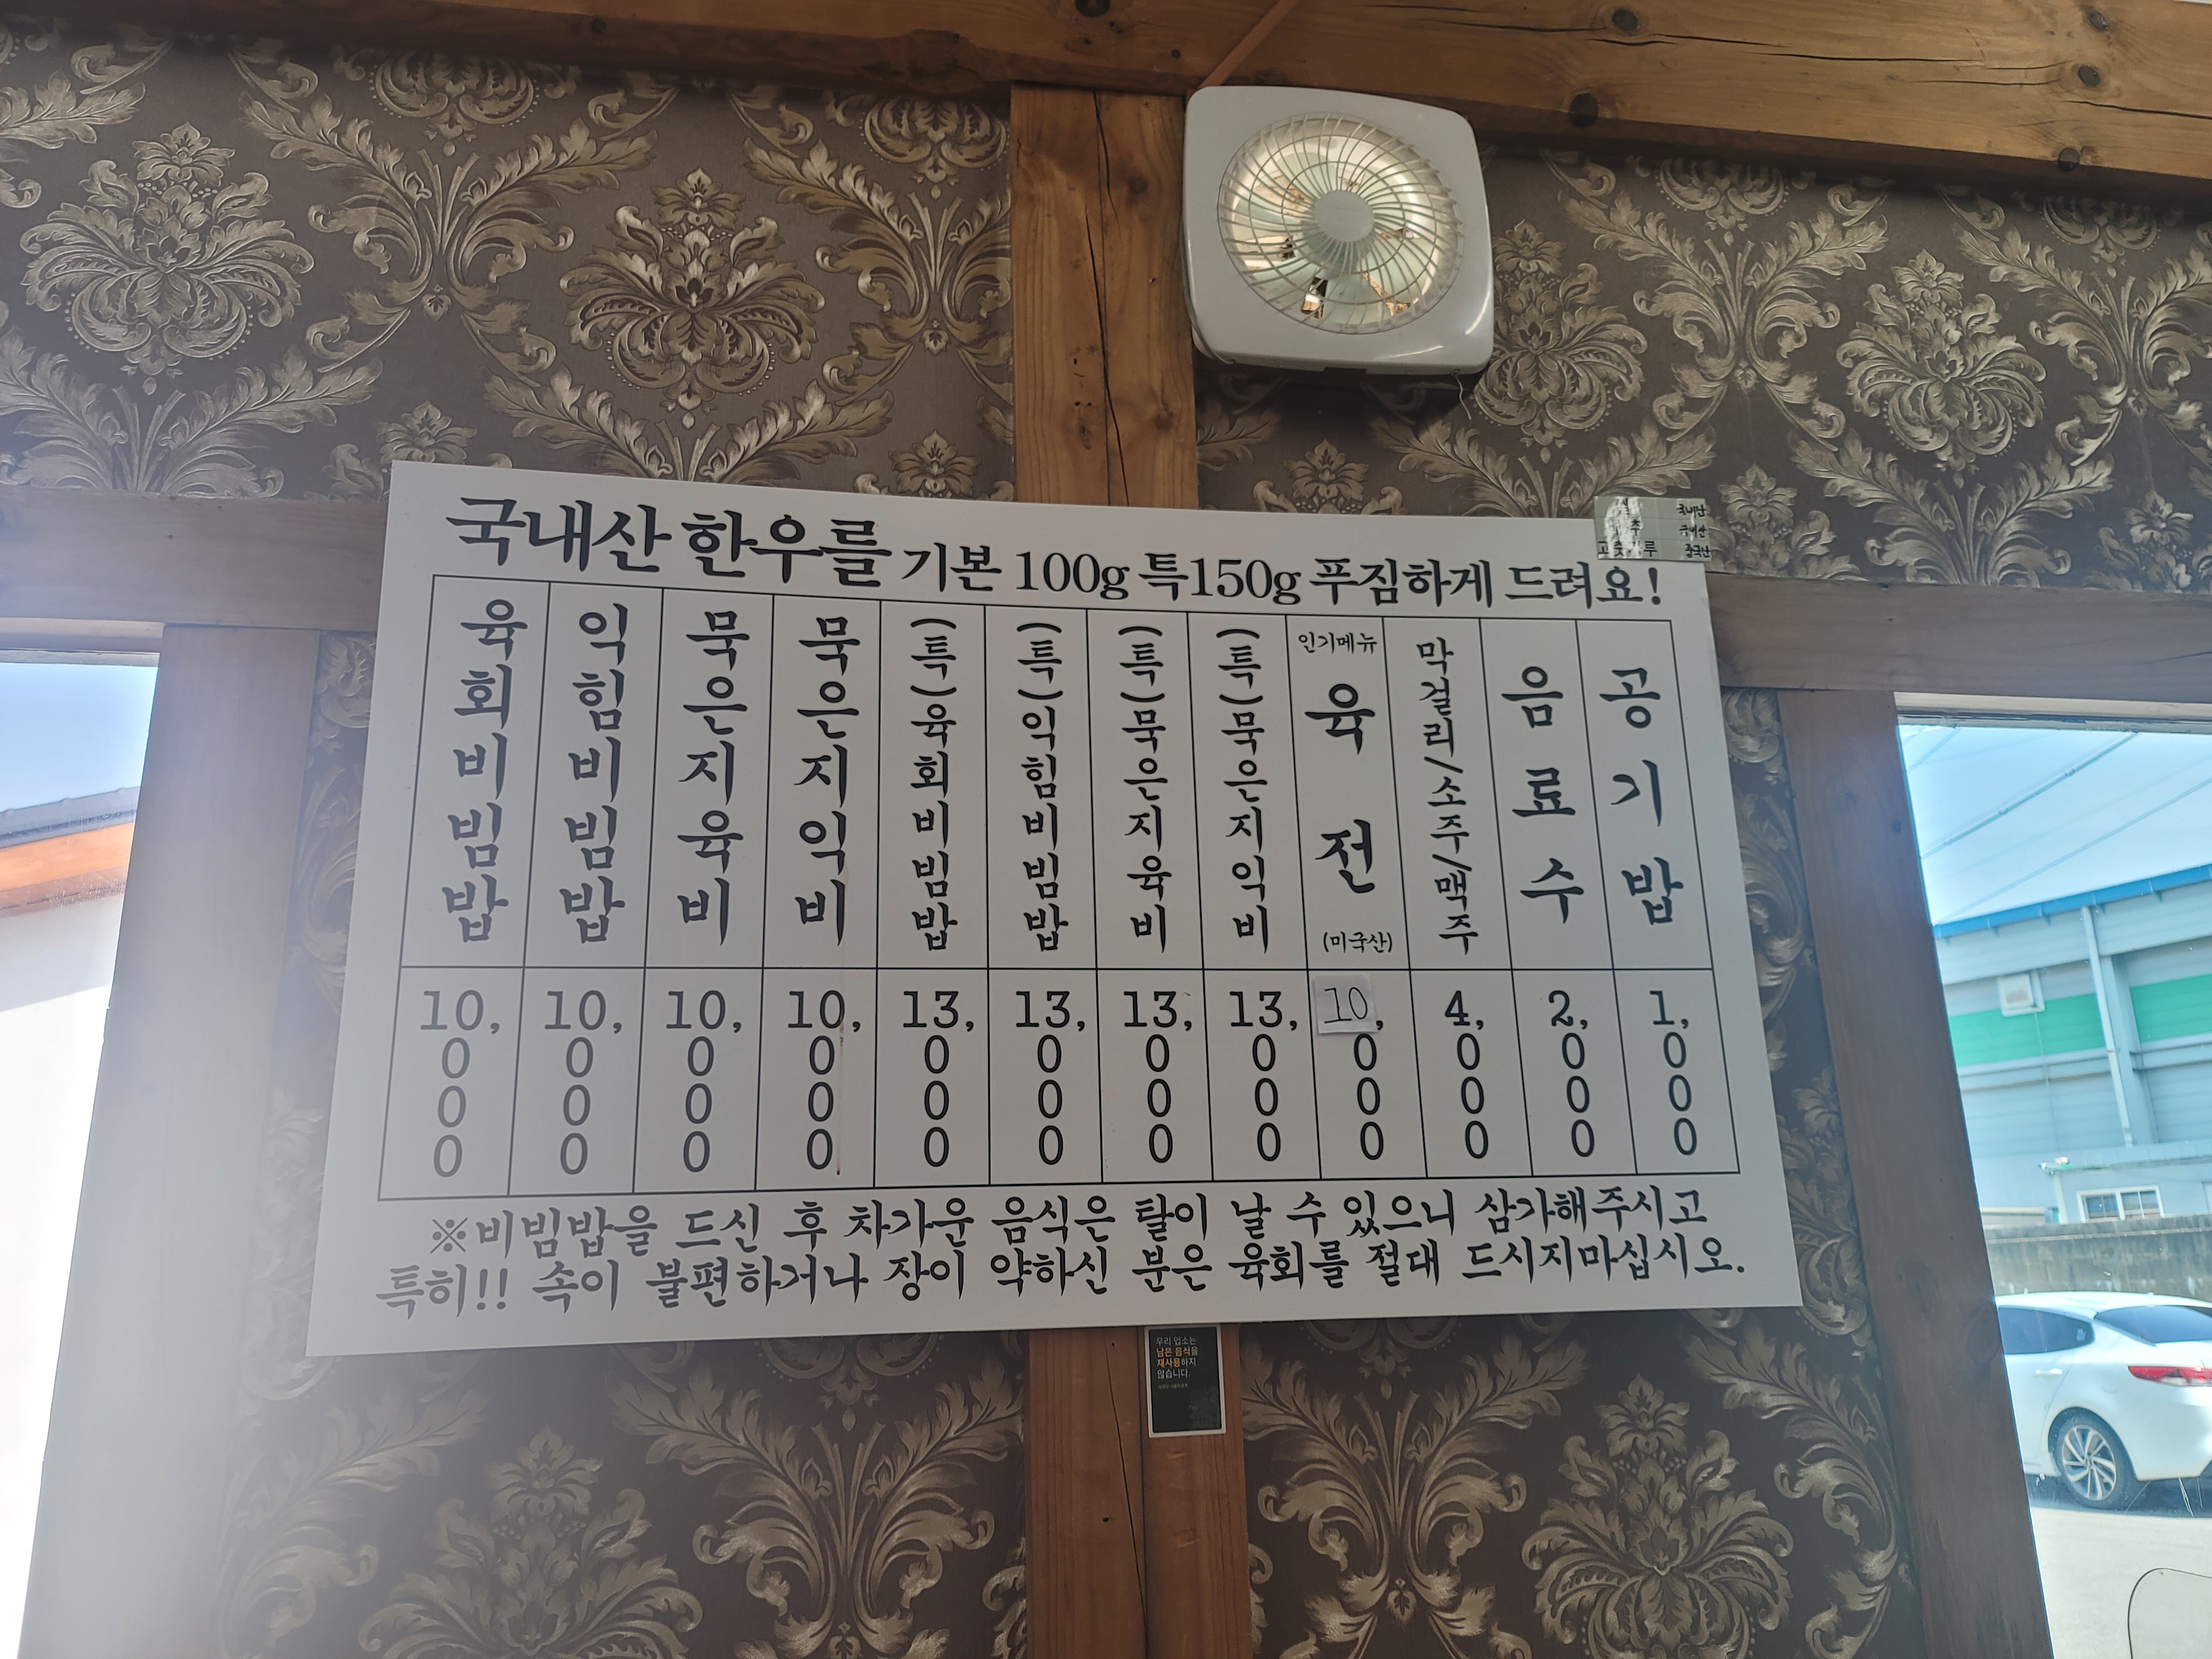 국내산 한우를 기본 100g 특150g 푸짐하게 드려요!
국내산
추 국내산
고춧가루 중국산
육회비빔밥 10,000
익힘비빔밥 10,000
묵은지육비 10,000
묵은지익비 10,000
(특)육회비빔밥 13,000
(특)익힘비빔밥 13,000
(특)묵은지육비 13,000
(특)묵은지익비 13,000
인기메뉴 육전 (미국산) 10,000
막걸리/소주/맥주 4,000
음료수 2,000
공기밥 1,000
※비빔밥을 드신 후 차가운 음식은 탈이 날 수 있으니 삼가해주시고
특히!! 속이 불편하거나 장이 약하신 분은 육회를 절대 드시지마십시오.
우리 업소는
남은 음식을
재사용하지
않습니다.